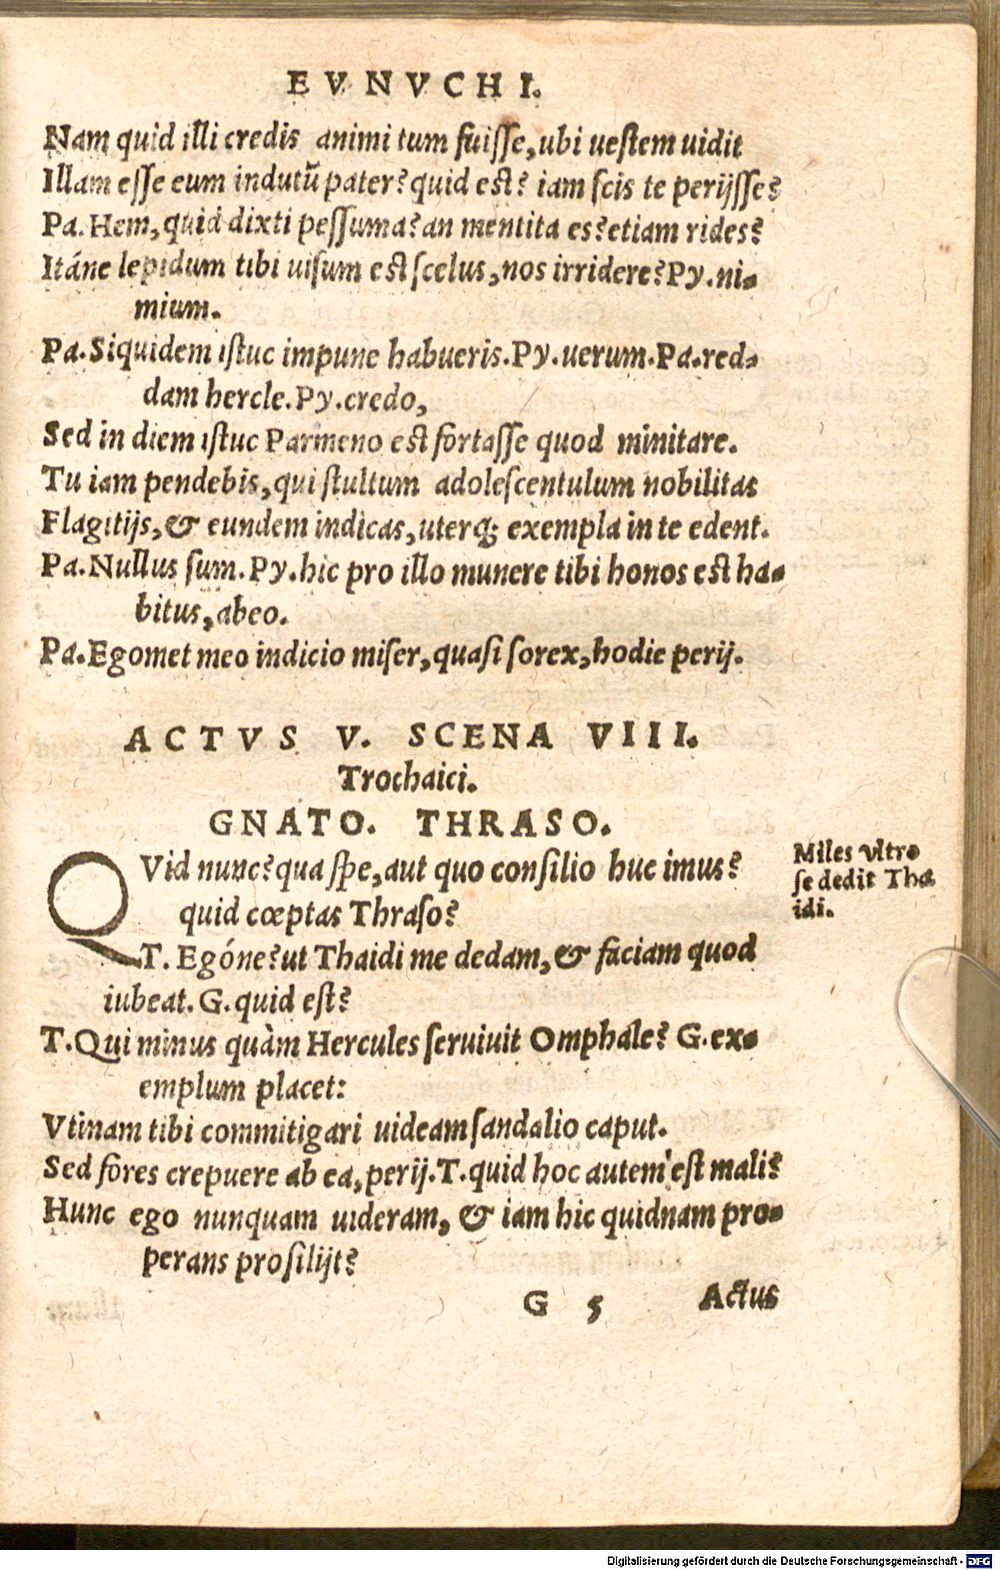 EVNVCHI.
Nam quid illi credis animi tum fuiſſe, ubi ueſtem uidit
Illam eſſe eum indutũ pater? quid eſt? iam ſcis te perijſſe?
Pa. Hem, quid dixti peſſuma? an mentita es? etiam rides?
Itáne lepidum tibi uiſum eſt ſcelus, nos irridere? Py. ni-
mium.
Pa. Siquidem iſtuc impune habueris. Py. uerum. Pa. red-
dam hercle. Py. credo,
Sed in diem iſtuc Parmeno eſt fortaſſe quod minitare.
Tu iam pendebis, qui ſtultum adoleſcentulum nobilitas
Flagitijs, & eundem indicas, uterq; exempla in te edent.
Pa. Nullus ſum. Py. hic pro illo munere tibi honos eſt ha-
bitus, abeo.
Pa. Egomet meo indicio miſer, quaſi ſorex, hodie perij.
ACTVS V. SCENA VIII.
Trochaici.
GNATO. THRASO.
QVid nunc? qua ſpe, aut quo conſilio huc imus?
quid cœptas Thraſo?
T. Egóne? ut Thaidi me dedam, & faciam quod
iubeat. G. quid eſt?
T. Qui minus quàm Hercules ſeruiuit Omphale? G. ex-
emplum placet:
Vtinam tibi commitigari uideam ſandalio caput.
Sed fores crepuere ab ea, perij. T. quid hoc autem eſt mali?
Hunc ego nunquam uideram, & iam hic quidnam pro-
perans proſilijt?
Miles vltro
ſe dedit Tha
idi.
G 5 Actus
Digitalisierung gefördert durch die Deutsche Forschungsgemeinschaft - DFG